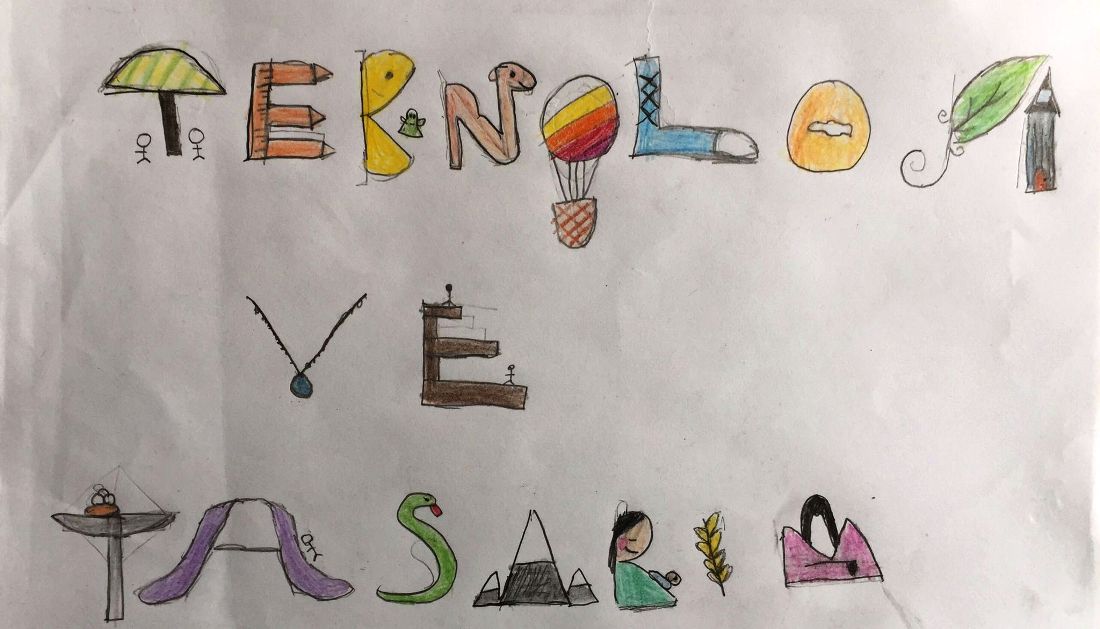 TEKNOLOJİ
VE
TASARIM